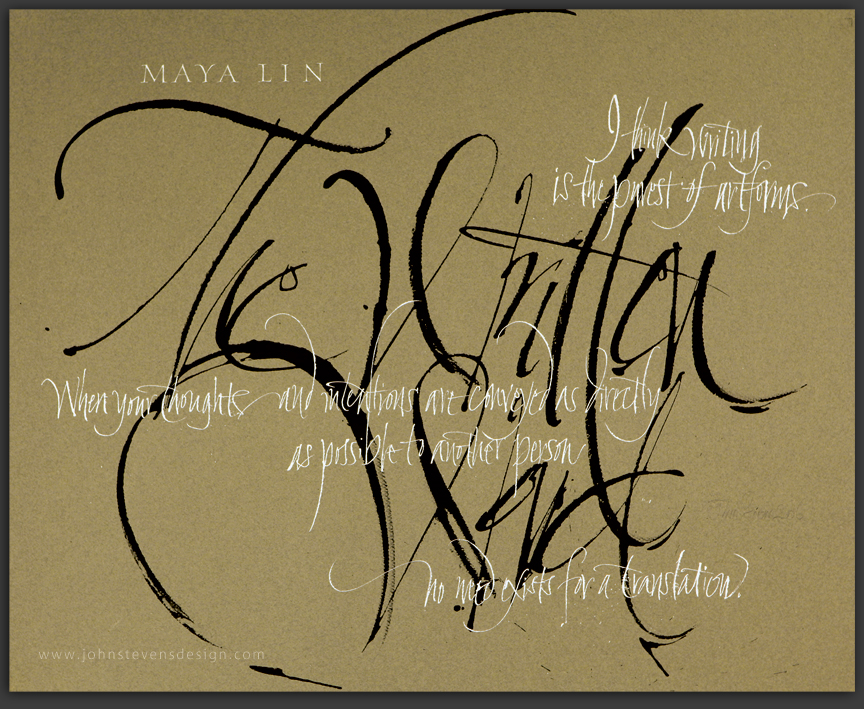 MAYA LIN
I think writing
is the purest of artforms.
The Written
Word
When your thoughts and intentions are conveyed as directly
as possible to another person
no need exists for a translation.
www.johnstevensdesign.com